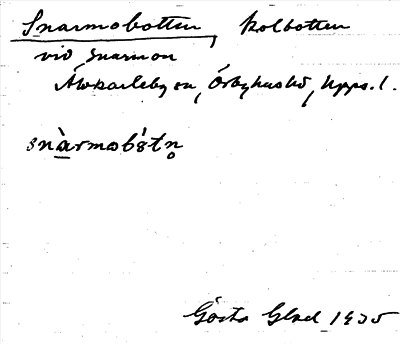 Snarmobotten, kolbotten
vid Snarmon
Älvkarleby sn, Örbyhus hd, Upps. l.
snàrmobǒtn̥
Gösta Glad 1935